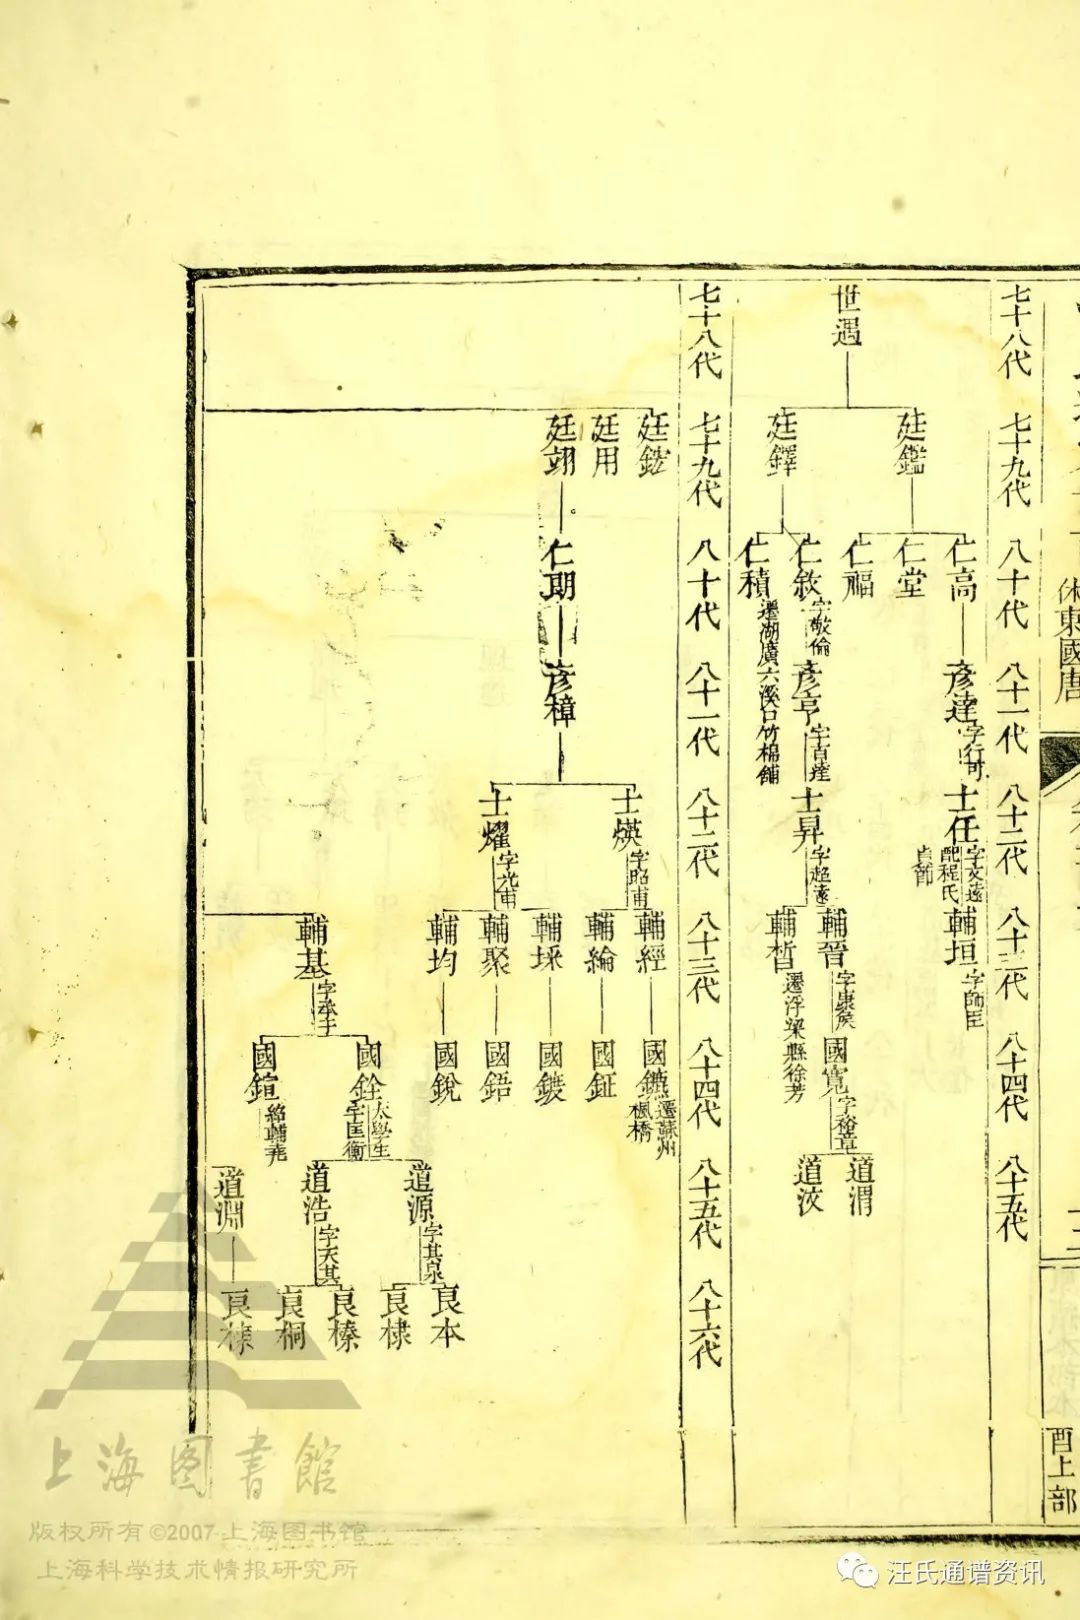 休東國唐
酉上部
七十八代
七十九代
八十代
八十一代
八十二代
八十三代
八十四代
八十五代
世遇
廷鑑
廷鐸
仁高
仁堂
仁福
仁敘
字敬倫
仁積
遷湖廣六溪口竹棉舖
彥達
字行可
彥亨
字百達
士任
字文遠
配程氏
貞節
士昇
字超遠
輔垣
字師臣
輔晉
字康侯
輔晳
遷浮梁縣徐芳
國寬
字裕章
道渭
道浹
七十八代
七十九代
八十代
八十一代
八十二代
八十三代
八十四代
八十五代
八十六代
廷用
廷翊
仁期
彥樟
士煐
字昭甫
士燿
字光甫
輔經
輔綸
輔埰
輔聚
輔均
輔基
字承于
國鑣
遷蘇州
楓橋
國鉦
國鋙
國銳
國銓
太學生
字匡衡
國鍹
紹輔堯
道源
字其泉
道浩
字天其
道淵
良本
良棣
良榛
良桐
上海图書館
版权所有©2007 上海图书馆
上海科学技术情报研究所
汪氏通谱资讯